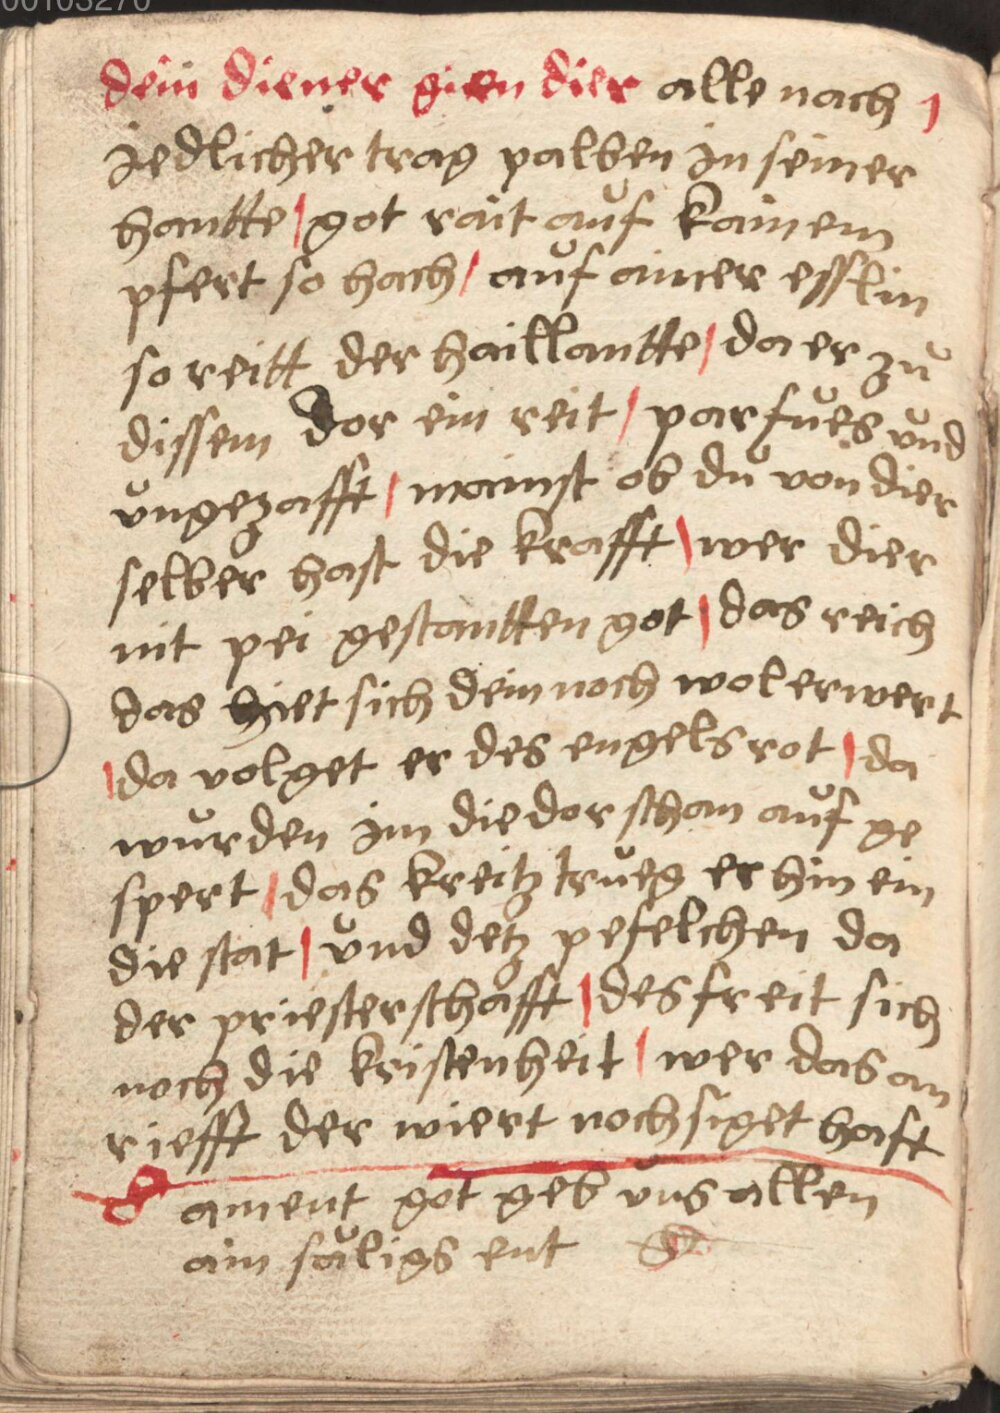 00103270
dein diener gien dier alle nach |
jedlicher trag palben jn seiner
hantte | got rait auf kainem
pfert so hach | auf ainer esslin
so reitt der haillantte | da er zů
dissem dor ein reit | parfůes vnd
vngezafft | mainst ob dů von dier
selber hast die krafft | wer dier
nit pei gestantten got | das reich
das hiet sich dein noch wol erwert
| da volget er des engels rot | da
wůrden im die dor schan aůf ge
spert | das kreitz trůeg er hin ein
die stat | vnd detz pefelchen da
der priesterschafft | des freit sich
noch die kristenheit | wer das an
riefft der wiert noch siget haft
ament got geb vns allen
ain säligs ent